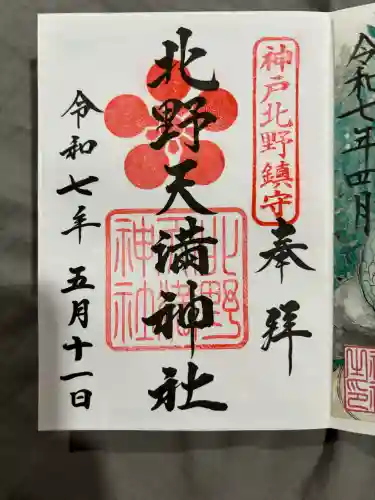 神戸北野鎮守
奉拝
北野天満神社
北野天満神社
令和七年五月十一日
令和七年四月